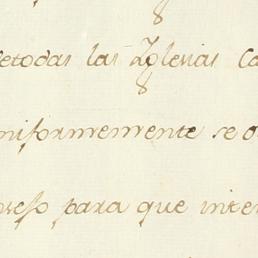 detodas las Yglesias Ca
niformemente se o
para que inte